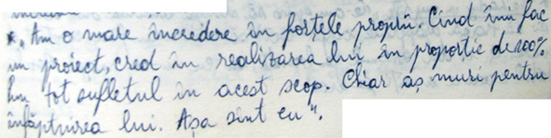 „Am o mare încredere în forțele proprii. Cînd îmi fac
un proiect, cred în realizarea lui în proporție de 100%.
Pun tot sufletul în acest scop. Chiar aș muri pentru
înfăptuirea lui. Așa sînt eu".